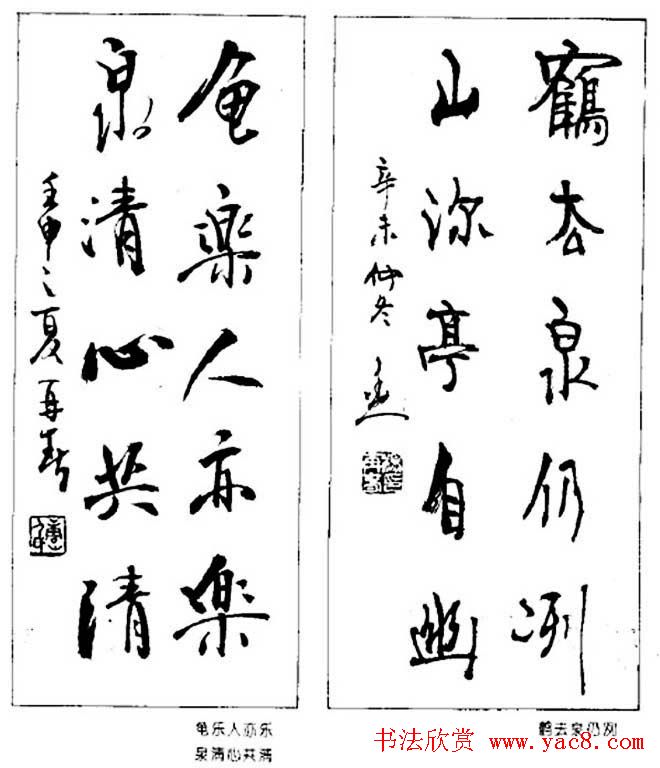 鶴去泉仍冽
山深亭自幽
辛未仲冬
龟樂人亦樂
泉清心共清
壬申之夏再春
龟乐人亦乐
泉清心共清
鹤去泉仍冽
书法欣赏 www.yac8.com